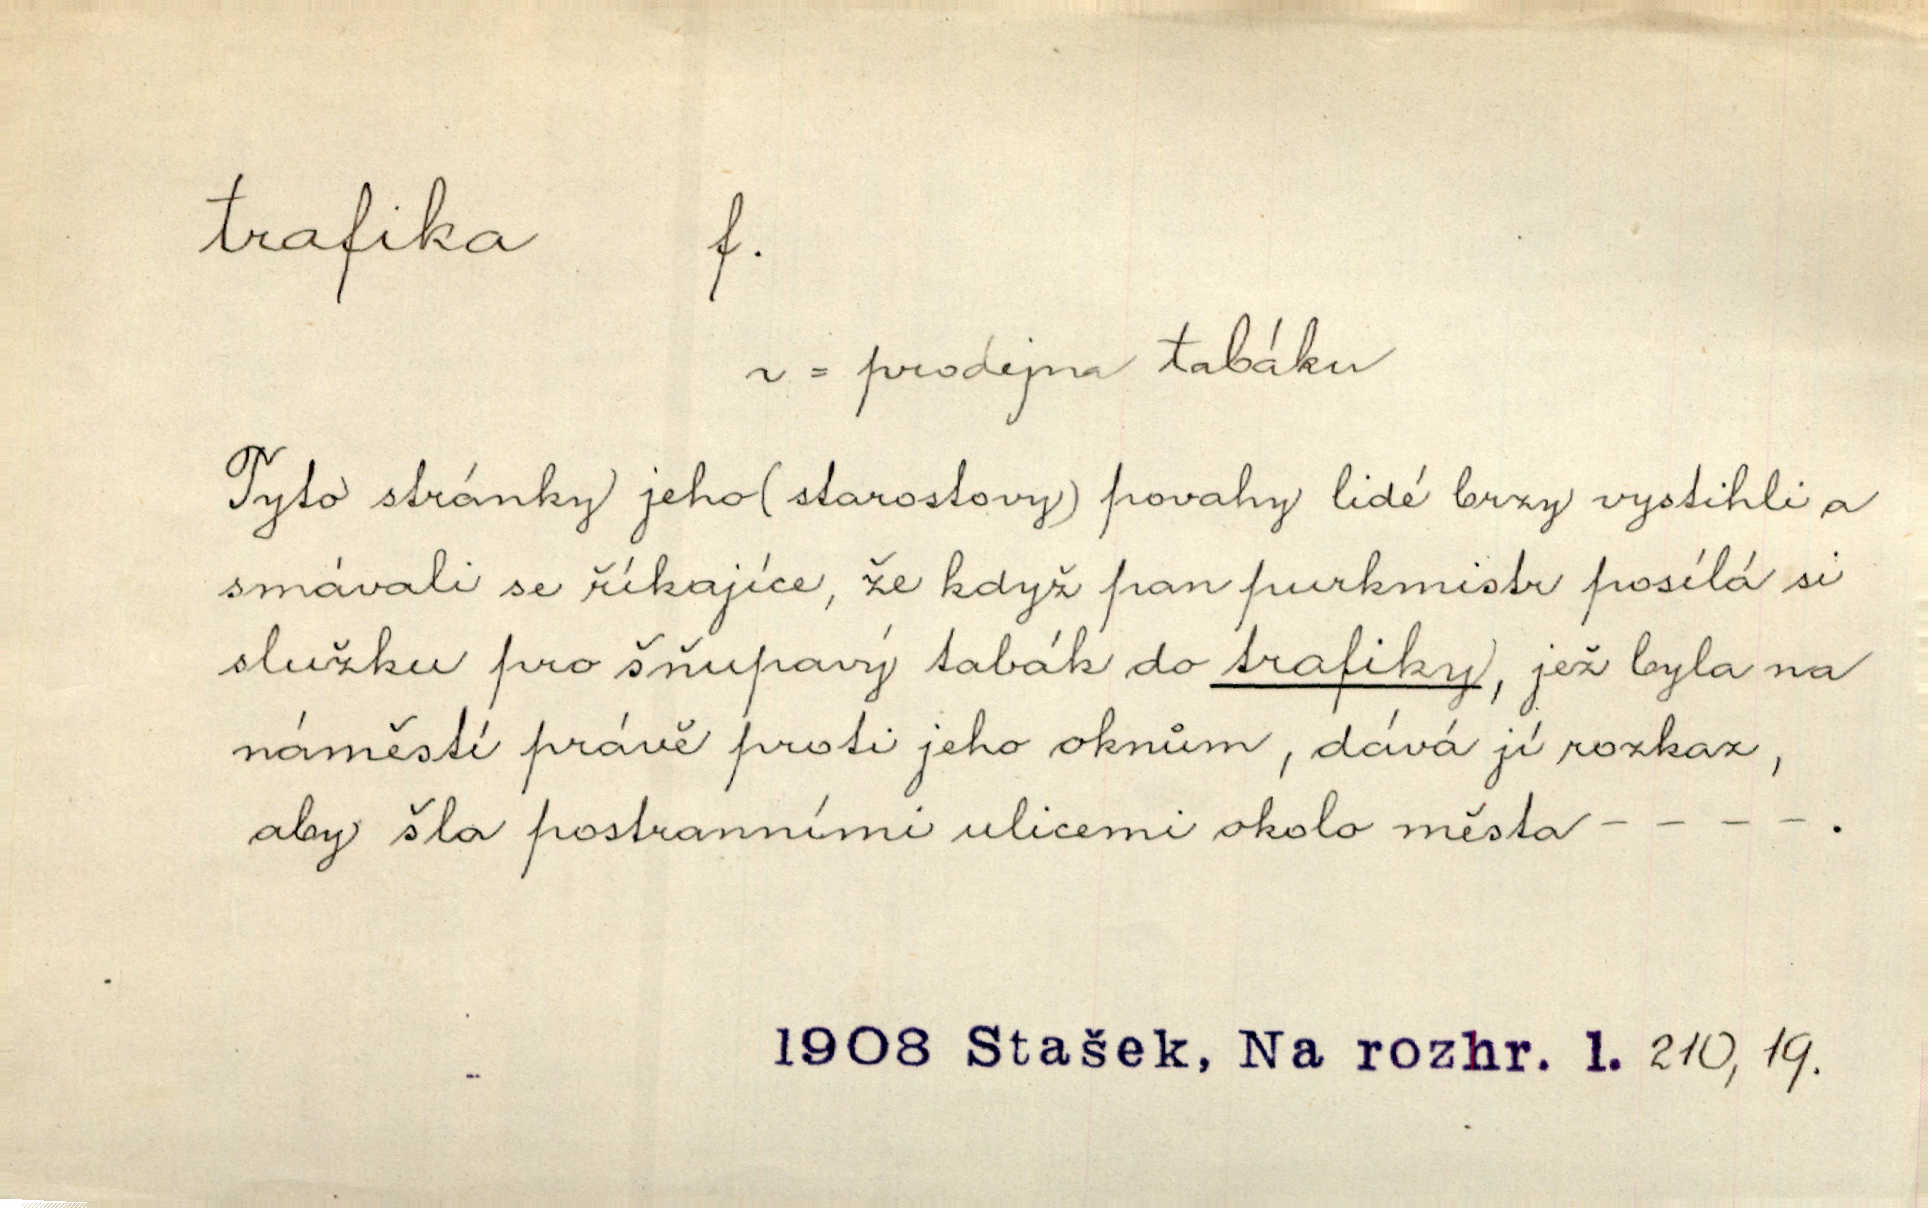 trafika f.
v = prodejna tabáku
Tyto stránky jeho (starostovy) povahy lidé brzy vystihli a
smávali se říkajíce, že když pan purkmistr posílá si
služku pro šňupavý tabák do trafiky, jež byla na
náměstí právě proti jeho oknům, dává jí rozkaz,
aby šla postranními ulicemi okolo města - - - - .
1908 Stašek, Na rozhr. 1. 210, 19.